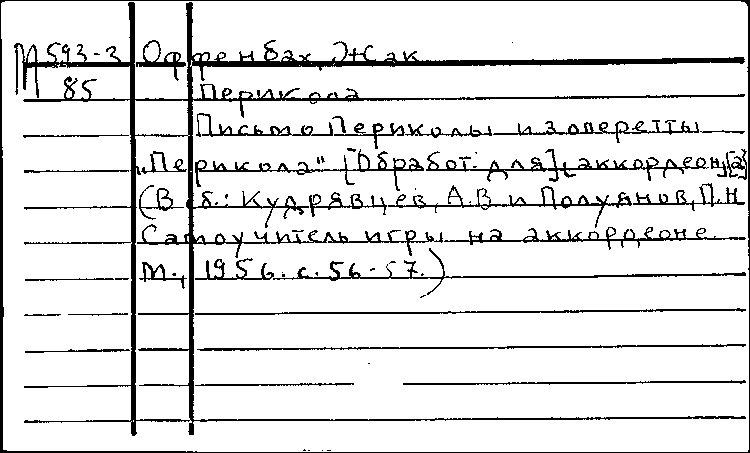 М593-3 Оффенбах, Жак
85 Перикола
Письмо Периколы из оперетты
„Перикола" [Обработ. для] аккордеон[а]
(В сб.: Кудрявцев, А.В и Полуянов, П.Н
Самоучитель игры на аккордеоне.
М., 1956. с. 56-57.)